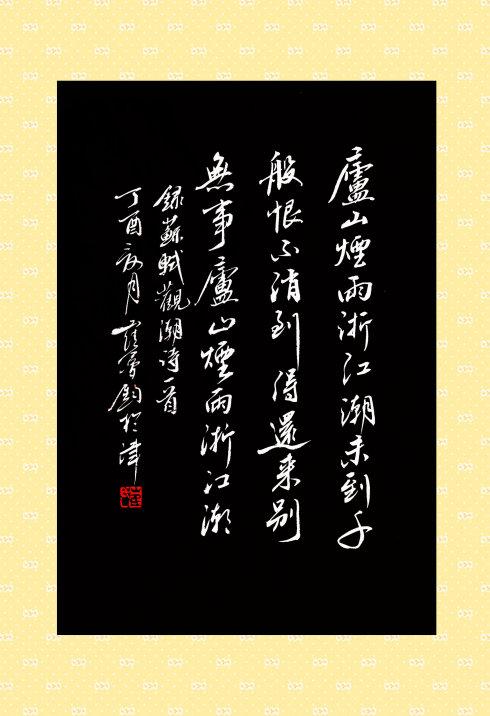 廬山煙雨浙江潮未到千
般恨不消到得還来别
無事廬山煙雨浙江潮
録蘇軾觀潮诗一首
丁酉亥月 於津